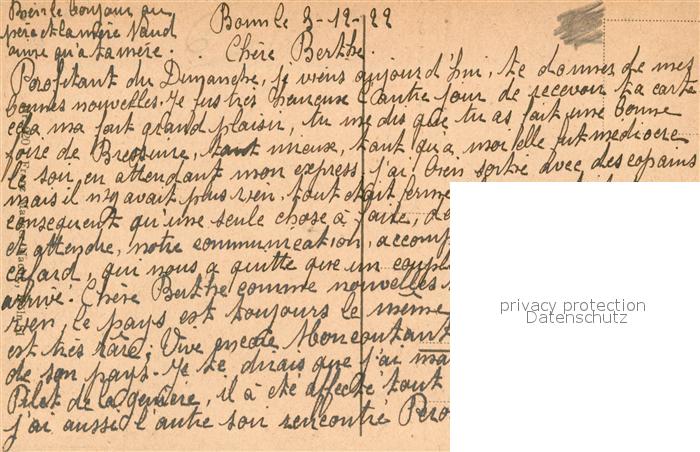 Bonn le 3-12-22
Bien le bonjour au
père et la mère Naud
ainsi qu'à ta mère.
Chère Berthe
Profitant du Dimanche, je viens aujourd'hui, te donner de mes
bonnes nouvelles. Je fus très heureuse l'autre jour de recevoir ta carte
cela ma fait grand plaisir, tu me dis que tu as fait une bonne
foire de Bressuire, tant mieux, tant qu'à moi elle fut médiocre
le soir en attendant mon express j'ai bien sortie avec des copains
mais il n'y avait plus rien, tout était fermé
conséquent qu'une seule chose à faire,
et attendre, notre communication,
cafard, qui nous a quitté que un
arrivé. Chère Berthe comme nouvelles
rien, le pays est toujours le même
est très rare. Vive encore Moncoutant
de son pays. Je te dirais que j'ai
Pilet de la il à été affecté tout
j'ai aussi l'autre soir rencontré
privacy protection
Datenschutz